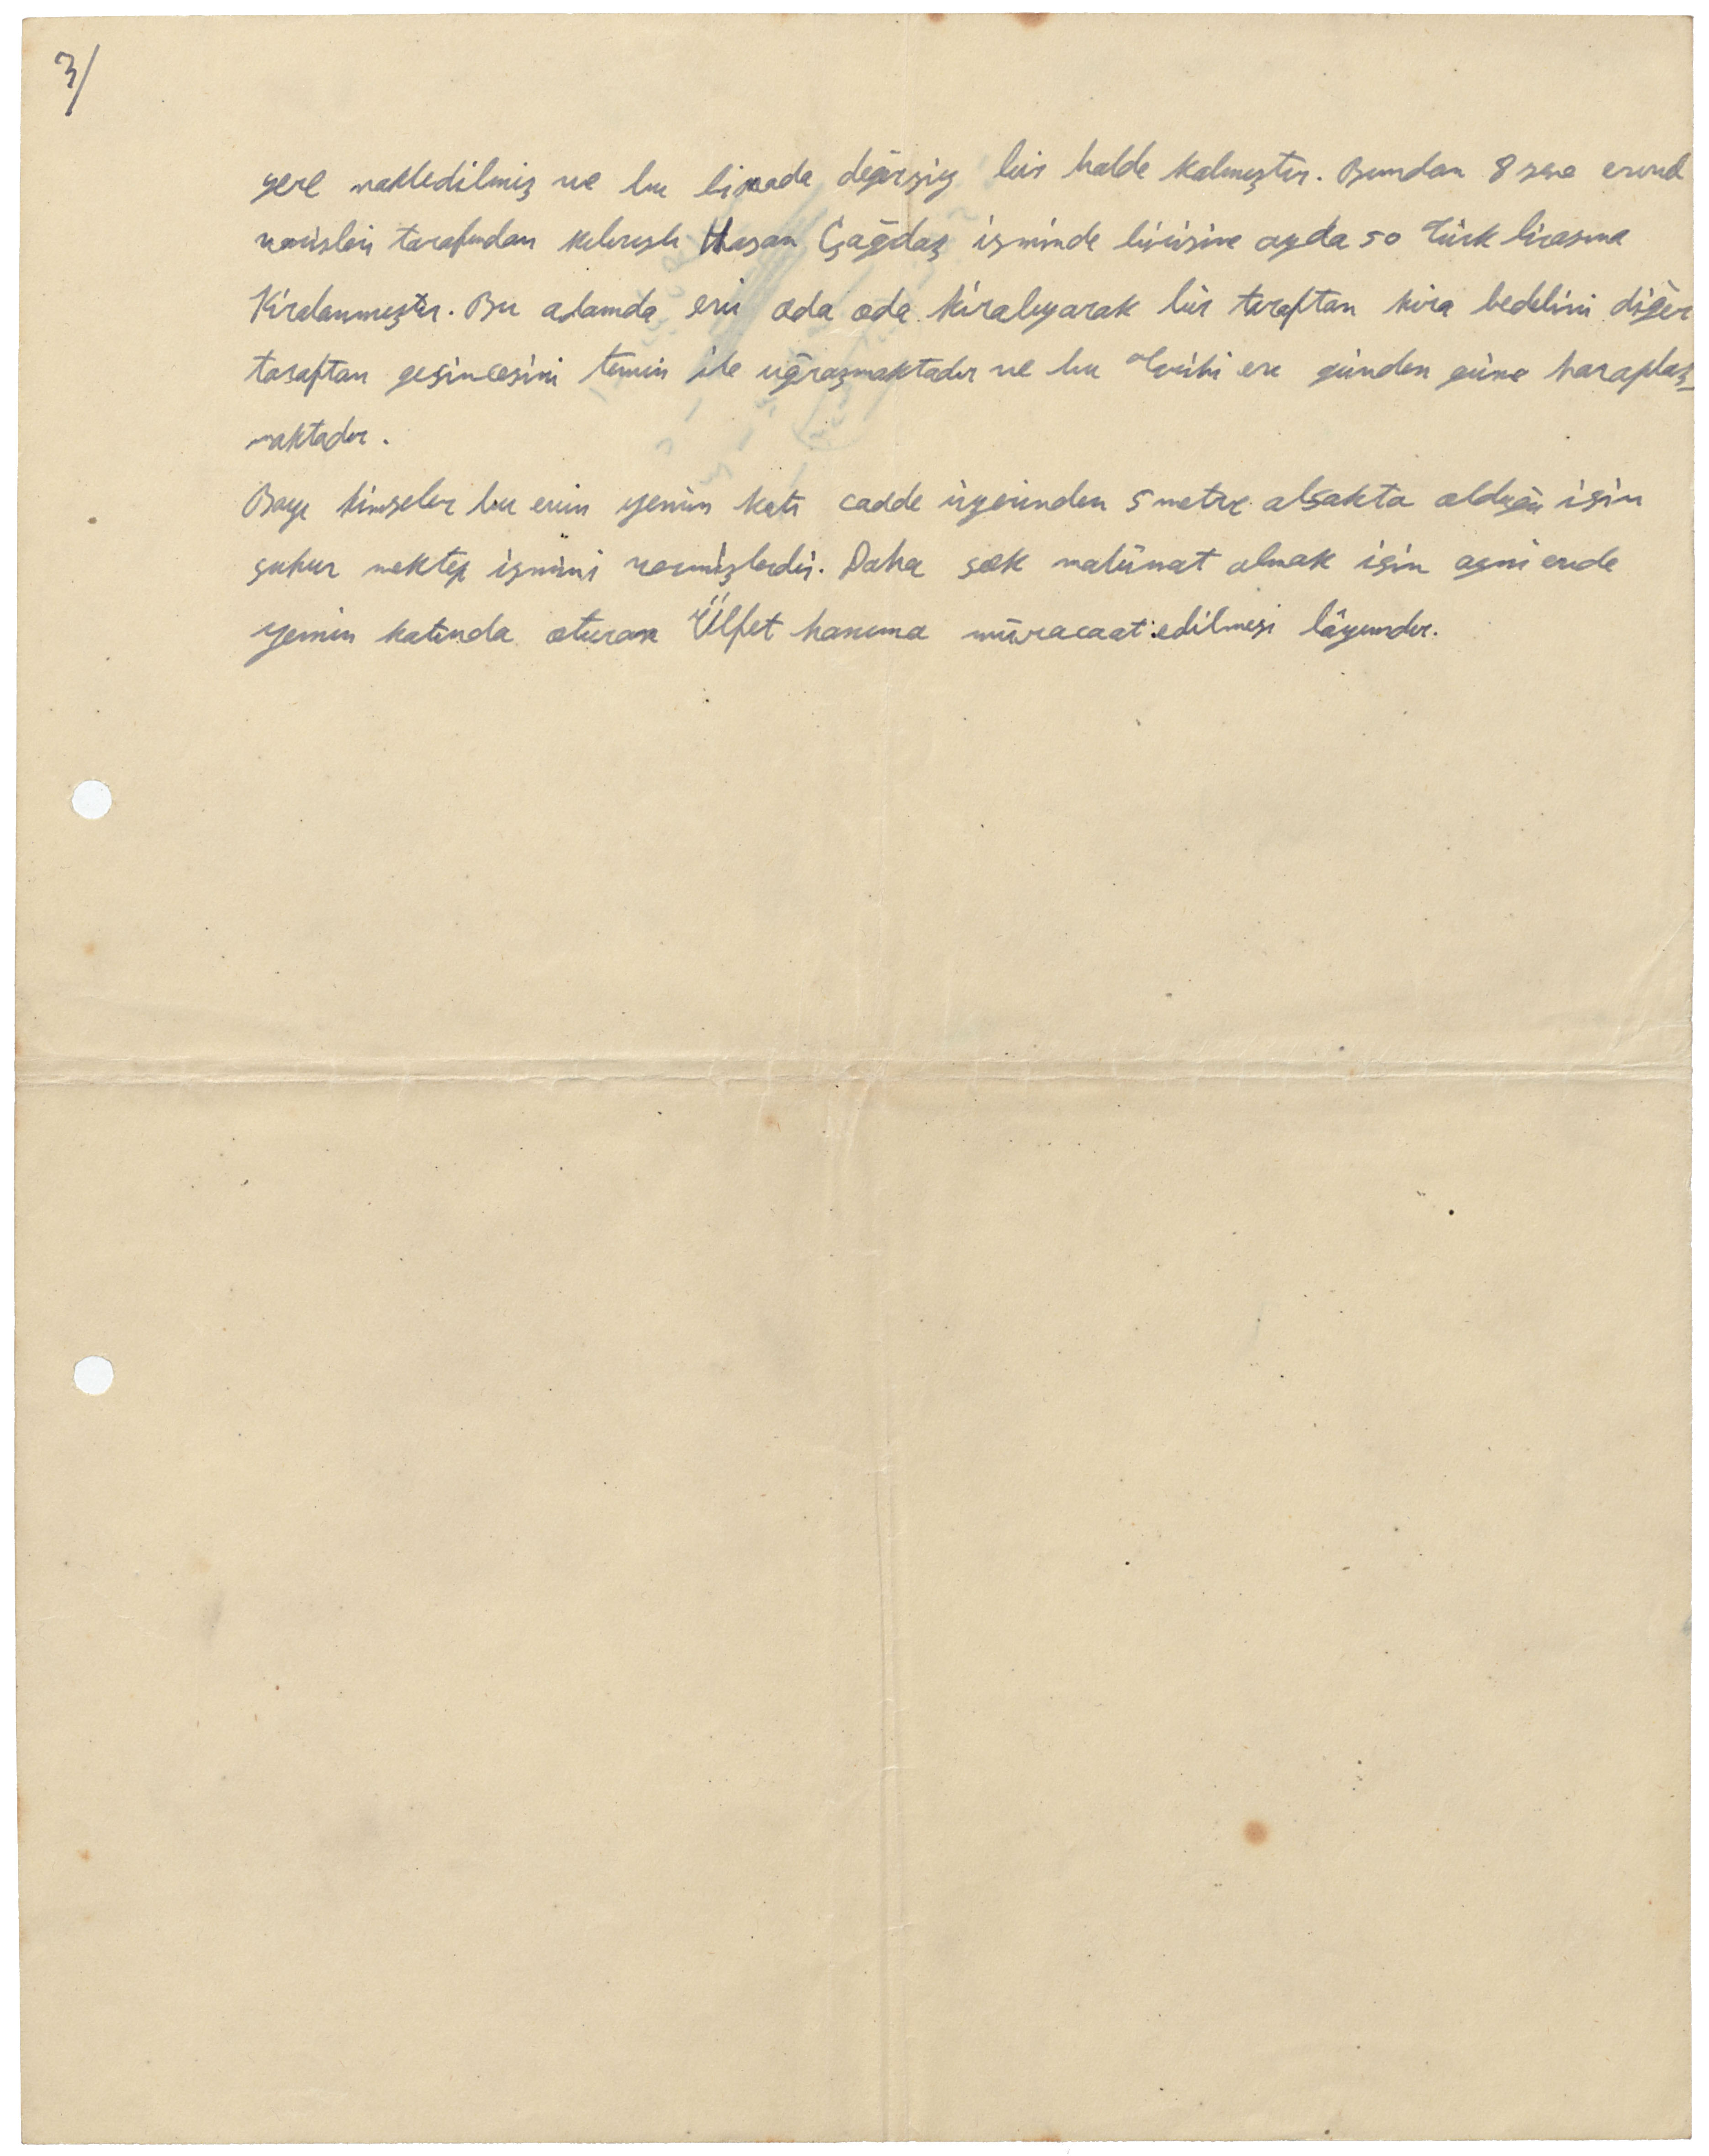 3/
yere nakledilmiş ve bu binada değersiz bir halde kalmıştır. Bundan 8 sene evvel
varisleri tarafından Hasan Çağdaş isminde birisine ayda 50 Türk lirasına
Kiralanmıştır. Bu adamda evi oda oda kiralıyarak bir taraftan kira bedelini diğer
taraftan geçincesini temin ile uğraşmaktadır ve bu tarihi ev günden güne haraplaş-
maktadır.
Bazı kimseler bu evin zemin katı cadde üzerinden 5 metre alçakta olduğu için
çukur mektep ismini vermişlerdir. Daha çok malümat almak için ayni evde
zemin katında oturan Ülfet hanıma müracaat edilmesi lâzımdır.